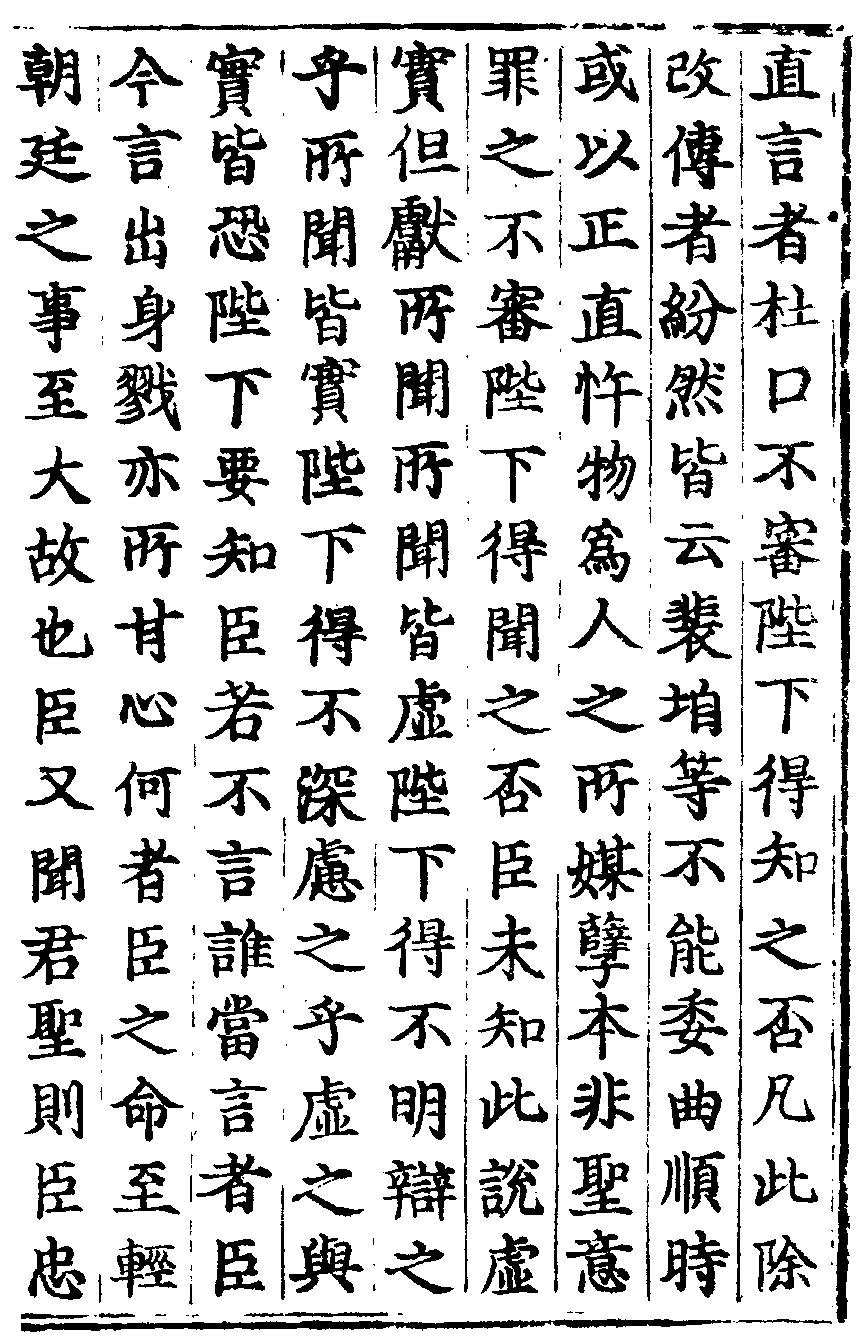 直言者杜口不審陛下得知之否凡此除
改傳者紛然皆云裴垍等不能委曲順時
或以正直忤物爲人之所媒孽本非聖意
罪之不審陛下得聞之否臣未知此說虛
實但獻所聞所聞皆虛陛下得不明辯之
乎所聞皆實陛下得不深慮之乎虛之與
實皆恐陛下要知臣若不言誰當言者臣
今言出身戮亦所甘心何者臣之命至輕
朝廷之事至大故也臣又聞君聖則臣忠